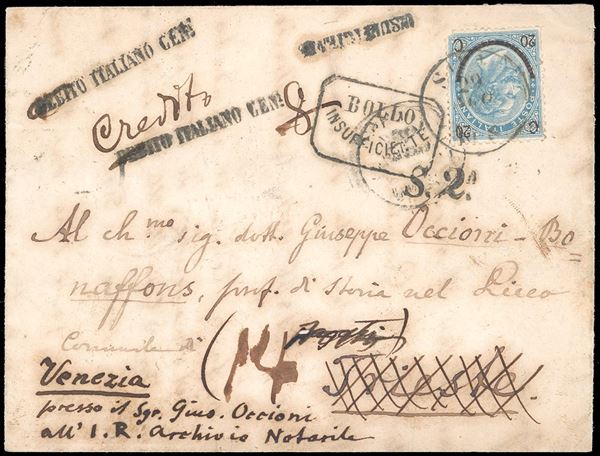 DEBITO ITALIANO CENT
C 20
20 C
POSTE ITALIANE
Credito
DEBITO ITALIANO CENT
8
BOLLO
INSUFFICIENTE
S. 2.
Al ch.mo sig. dott. Giuseppe Occioni-Bo
naffons, prof. di Storia nel Liceo
Comunale di
(14
Trieste.
Venezia
presso il Sgr. Gius. Occioni
all' I. R. Archivio Notarile